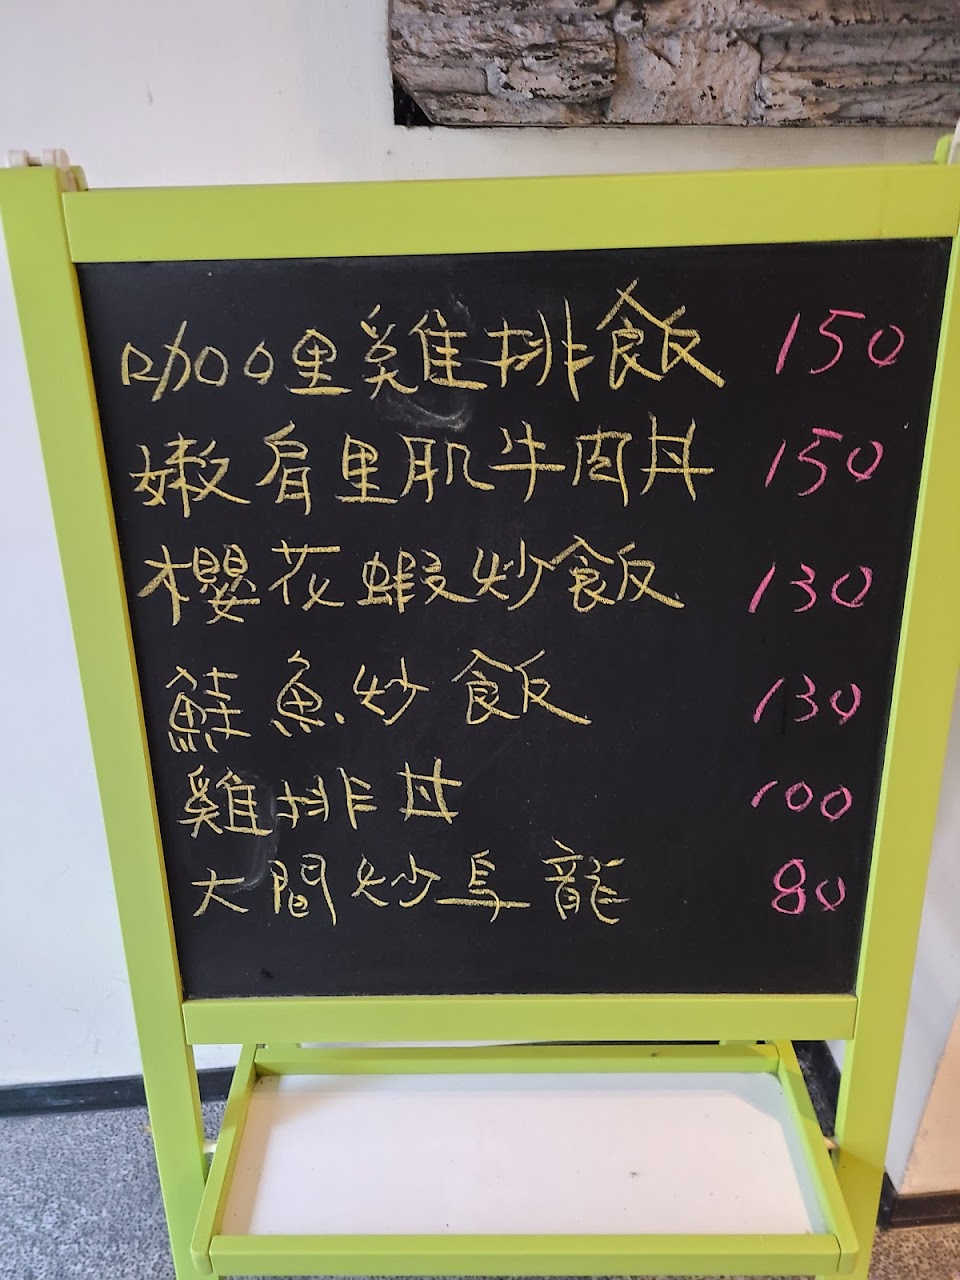 咖哩雞排飯 150
嫩肩里肌牛肉丼 150
櫻花蝦炒飯 130
鮭魚炒飯 130
雞排丼 100
大間炒烏龍 80